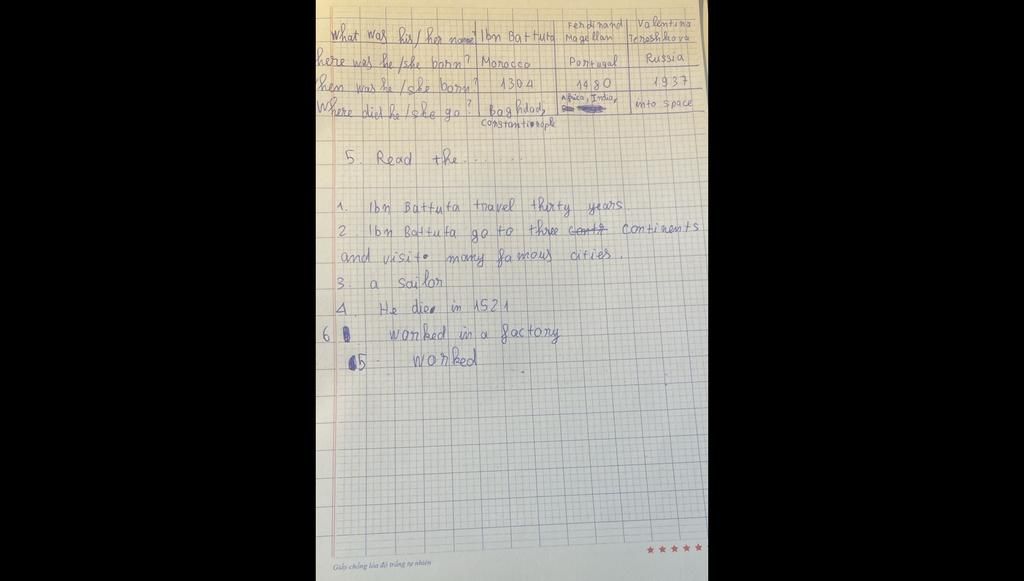 What was his/her name? Ibn Battuta Ferdinand Magellan Valentina Tereshkova
here was he/she born? Morocco Portugal Russia
hen was he/she born? 1304 1480 1937
Where did he/she go? Baghdad, Constantinople Africa, India, into space
5. Read the.......
1. Ibn Battuta travel thirty years
2. Ibn Battuta go to three continents
and visit many famous cities.
3. a sailor
4. He die in 1521
6 worked in a factory
5. worked
Giấy chống lóa độ trắng tự nhiên